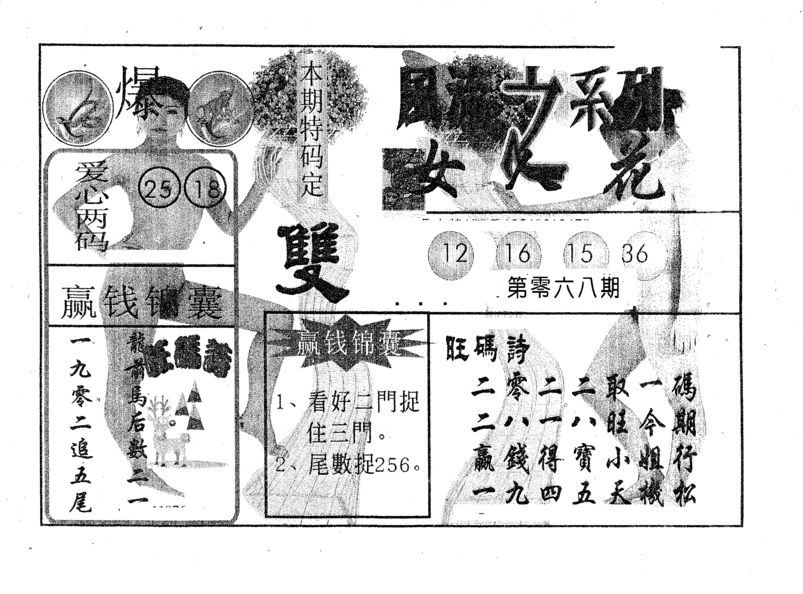 爆
爱心两码
25 18
赢钱锦囊
旺碼詩
龍前馬后數二一
一九零二追五尾
本期特码定
雙
赢钱锦囊
1、看好二門捉
住三門。
2、尾數捉256。
系列
女 花
12 16 15 36
第零六八期
旺碼詩
二零二二取一碼
二八一八旺今期
赢錢得寶小姐行
一九四五天機松